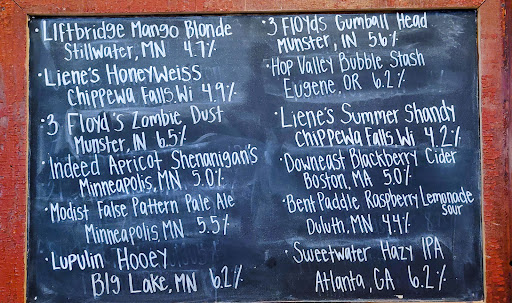 • Liftbridge Mango Blonde
Stillwater, MN 4.7%
• Liene's HoneyWeiss
Chippewa Falls, Wi 4.9%
• 3 Floyd's Zombie Dust
Munster, IN 6.5%
• Indeed Apricot Shenanigan's
Minneapolis, MN 5.0%
• Modist False Pattern Pale Ale
Minneapolis, MN 5.5%
• Lupulin Hooey
Big Lake, MN 6.2%
• 3 Floyds Gumball Head
Munster, IN 5.6%
• Hop Valley Bubble Stash
Eugene, OR 6.2%
• Liene's Summer Shandy
Chippewa Falls, Wi 4.2%
• Downeast Blackberry Cider
Boston, MA 5.0%
• Bent Paddle Raspberry Lemonade
sour
Duluth, MN 4.4%
• Sweetwater Hazy IPA
Atlanta, GA 6.2%